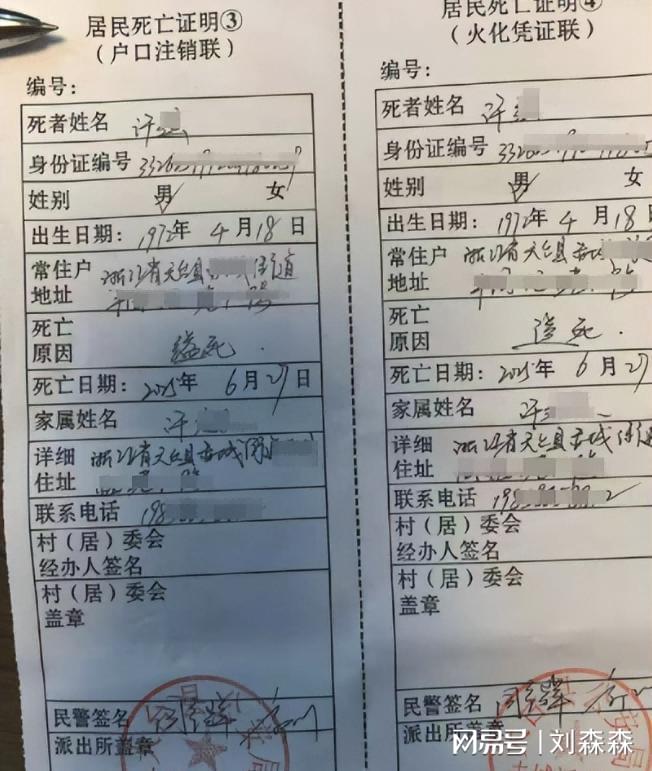 居民死亡证明③
（户口注销联）
编号：
死者姓名 许
身份证编号 33262
姓别 男 女
出生日期：1972年 4月18日
常住户 浙江省天台县 街道
地址
死亡
原因 缢死.
死亡日期：2025年 6月27日
家属姓名 许
详细 浙江省天台县赤城街
住址
联系电话 198
村（居）委会
经办人签名
村（居）委会
盖章
民警签名
派出所盖章
居民死亡证明④
（火化凭证联）
编号：
死者姓名 许
身份证编号 3326
姓别 男 女
出生日期：1972年 4月18
常住户 浙江省天台县赤城
地址
死亡
原因 缢死.
死亡日期：2025年 6月27
家属姓名 许
详细 浙江省天台县赤城街道
住址
联系电话 198 2
村（居）委会
经办人签名
村（居）委会
盖章
民警签名
派出所盖
网易号 | 刘森森